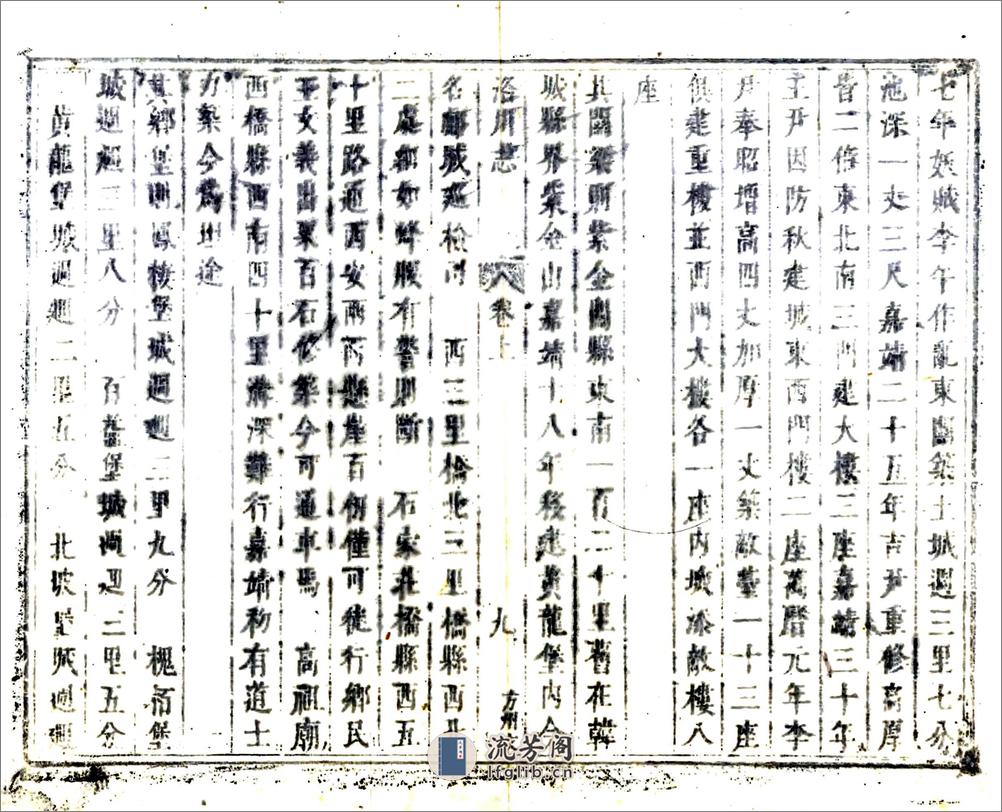 七年妖賊李午作亂東關築土城週三里七分
池深一丈三尺嘉靖二十五年吉尹重修高厚
皆二倍東北南三門建大樓三座嘉靖三十年
主尹因防秋建城東西門樓二座萬曆元年李
尹奉昭增高四丈加厚一丈築敵臺一十三座
俱建重樓並西門大樓各一座內城添敵樓八
座
其關梁則紫金關縣東南一百二十里舊在韓
城縣界紫金山嘉靖十八年移建黃龍堡內今
洛川志 卷上 九 方州
名鄜城巡檢司 西三里橋北三里橋縣西北
二處鄉如蜂腰有警則斷 石家莊橋縣西五
十里路通西安兩崖百仞僅可徒行鄉民
王女義出粟百石修築今可通車馬 高祖廟
西橋縣西南四十里溝深難行嘉靖初有道士
力築今爲坦途
其鄉堡則鳳棲堡城週廻三里九分 槐栢堡
城週廻三里八分 百益堡城週廻二里五分
黃龍堡城週廻二里五分 北坡堡城週廻
流芳阁
lfglib.cn